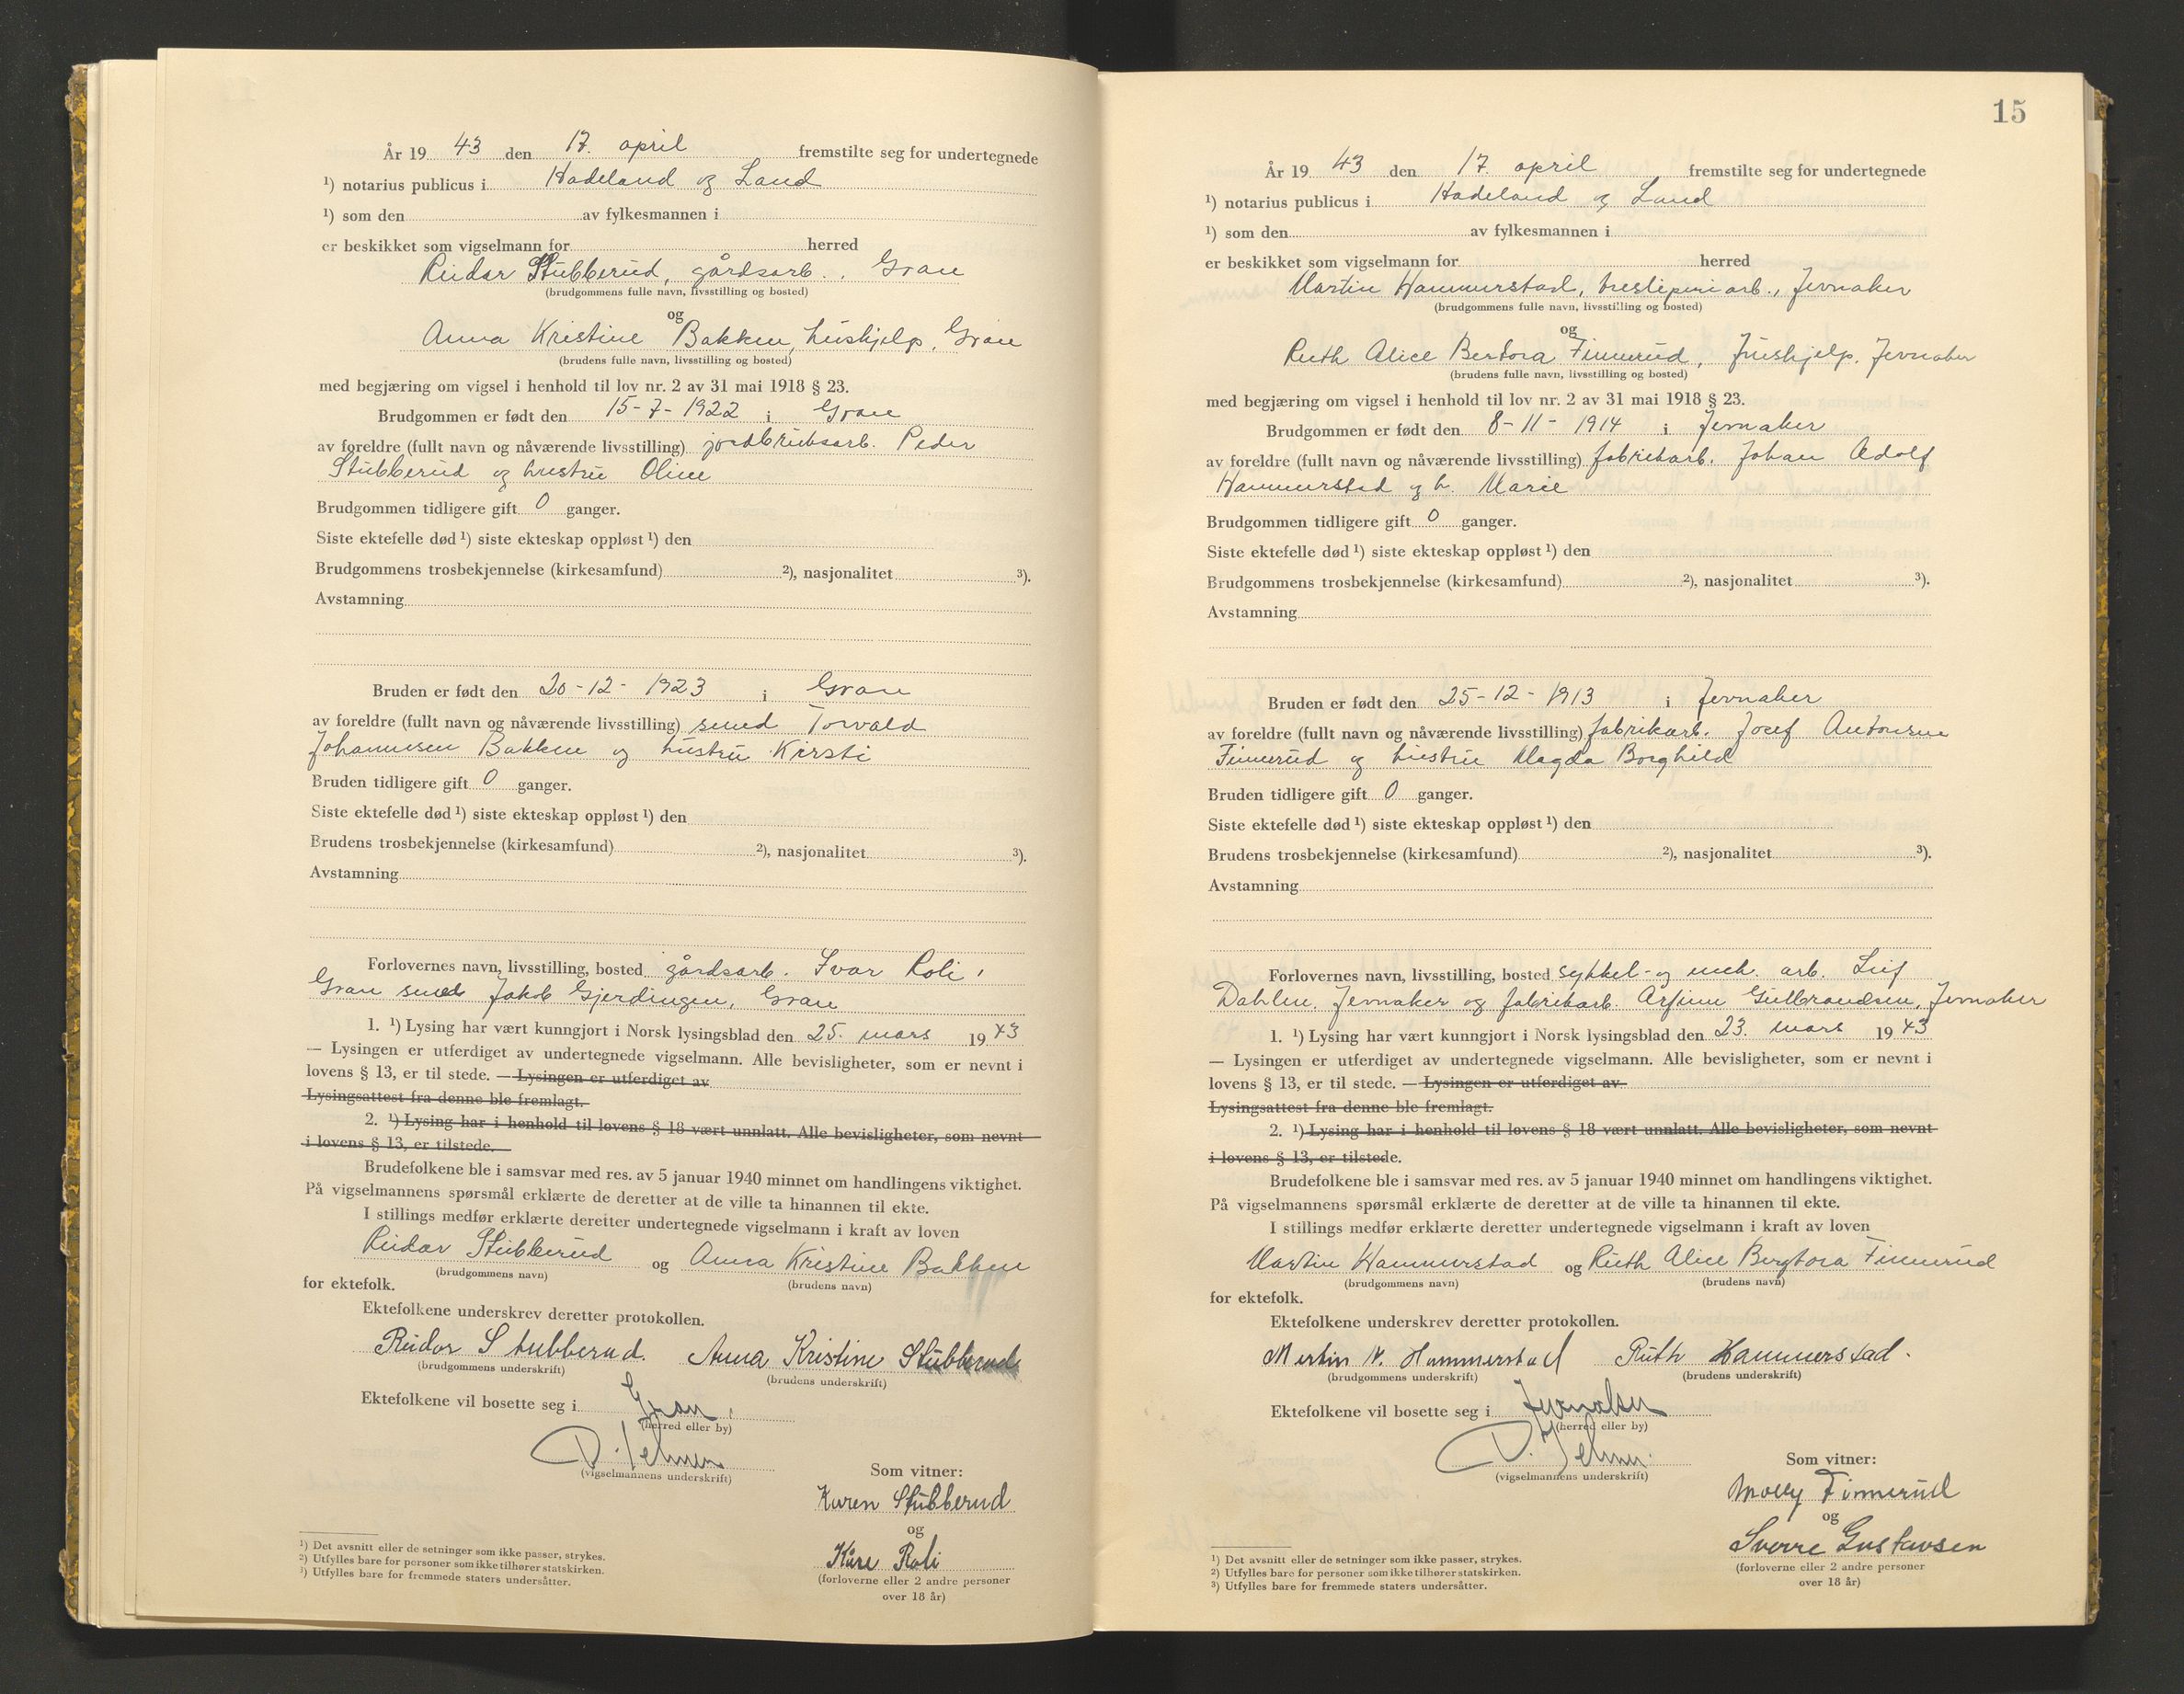 År 19 43 den 17. april fremstilte seg for undertegnede
¹) notarius publicus i Hadeland og Land
¹) som den av fylkesmannen i
er beskikket som vigselmann for herred
Reidar Stubberud, gårdsarb., Gran
(brudgommens fulle navn, livsstilling og bosted)
og
Anna Kristine Bakken, hushjelp, Gran
(brudens fulle navn, livsstilling og bosted)
med begjæring om vigsel i henhold til lov nr. 2 av 31 mai 1918 § 23.
Brudgommen er født den 15-7-1922 i Gran
av foreldre (fullt navn og nåværende livsstilling) jordbruksarb. Peder
Stubberud og hustru Oline
Brudgommen tidligere gift 0 ganger.
Siste ektefelle død ¹) siste ekteskap oppløst ¹) den
Brudgommens trosbekjennelse (kirkesamfund) ²), nasjonalitet ³).
Avstamning
Bruden er født den 20-12-1923 i Gran
av foreldre (fullt navn og nåværende livsstilling) smed Torvald
Johannesen Bakken og hustru Kirsti
Bruden tidligere gift 0 ganger.
Siste ektefelle død ¹) siste ekteskap oppløst ¹) den
Brudens trosbekjennelse (kirkesamfund) ²), nasjonalitet ³).
Avstamning
Forlovernes navn, livsstilling, bosted gårdsarb. Ivar Roli,
Gran smed Jakob Gjerdingen, Gran
1. ¹) Lysing har vært kunngjort i Norsk lysingsblad den 25. mars 19 43
— Lysingen er utferdiget av undertegnede vigselmann. Alle bevisligheter, som er nevnt i
lovens § 13, er til stede. — Lysingen er utferdiget av
Lysingsattest fra denne ble fremlagt.
2. ¹) Lysing har i henhold til lovens § 18 vært unnlatt. Alle bevisligheter, som nevnt
i lovens § 13, er tilstede.
Brudefolkene ble i samsvar med res. av 5 januar 1940 minnet om handlingens viktighet.
På vigselmannens spørsmål erklærte de deretter at de ville ta hinannen til ekte.
I stillings medfør erklærte deretter undertegnede vigselmann i kraft av loven
Reidar Stubberud og Anna Kristine Bakken
(brudgommens navn) (brudens navn)
for ektefolk.
Ektefolkene underskrev deretter protokollen.
Reidar Stubberud. Anna Kristine Stubberud
(brudgommens underskrift) (brudens underskrift)
Ektefolkene vil bosette seg i Gran.
(herred eller by)
(vigselmannens underskrift)
Som vitner:
Karen Stubberud
og
Kåre Roli
(forloverne eller 2 andre personer
over 18 år)
¹) Det avsnitt eller de setninger som ikke passer, strykes.
²) Utfylles bare for personer som ikke tilhører statskirken.
³) Utfylles bare for fremmede staters undersåtter.
15
År 19 43 den 17. april fremstilte seg for undertegnede
¹) notarius publicus i Hadeland og Land
¹) som den av fylkesmannen i
er beskikket som vigselmann for herred
Martin Hammerstad, tresliperiarb., Jevnaker
(brudgommens fulle navn, livsstilling og bosted)
og
Ruth Alice Bertora Finnerud, Hushjelp, Jevnaker
(brudens fulle navn, livsstilling og bosted)
med begjæring om vigsel i henhold til lov nr. 2 av 31 mai 1918 § 23.
Brudgommen er født den 8-11-1914 i Jevnaker
av foreldre (fullt navn og nåværende livsstilling) fabrikarb. Johan Adolf
Hammerstad og h. Marie
Brudgommen tidligere gift 0 ganger.
Siste ektefelle død ¹) siste ekteskap oppløst ¹) den
Brudgommens trosbekjennelse (kirkesamfund) ²), nasjonalitet ³).
Avstamning
Bruden er født den 25-12-1913 i Jevnaker
av foreldre (fullt navn og nåværende livsstilling) fabrikarb. Josef Antonsen
Finnerud og hustru Magda Borghild
Bruden tidligere gift 0 ganger.
Siste ektefelle død ¹) siste ekteskap oppløst ¹) den
Brudens trosbekjennelse (kirkesamfund) ²), nasjonalitet ³).
Avstamning
Forlovernes navn, livsstilling, bosted sykkel- og mek. arb. Leif
Dahlen, Jevnaker og fabrikarb. Arfinn Gulbrandsen, Jevnaker
1. ¹) Lysing har vært kunngjort i Norsk lysingsblad den 23. mars 19 43
— Lysingen er utferdiget av undertegnede vigselmann. Alle bevisligheter, som er nevnt i
lovens § 13, er til stede. — Lysingen er utferdiget av
Lysingsattest fra denne ble fremlagt.
2. ¹) Lysing har i henhold til lovens § 18 vært unnlatt. Alle bevisligheter, som nevnt
i lovens § 13, er tilstede.
Brudefolkene ble i samsvar med res. av 5 januar 1940 minnet om handlingens viktighet.
På vigselmannens spørsmål erklærte de deretter at de ville ta hinannen til ekte.
I stillings medfør erklærte deretter undertegnede vigselmann i kraft av loven
Martin Hammerstad og Ruth Alice Bergtora Finnerud
(brudgommens navn) (brudens navn)
for ektefolk.
Ektefolkene underskrev deretter protokollen.
Martin N. Hammerstad Ruth Hammerstad.
(brudgommens underskrift) (brudens underskrift)
Ektefolkene vil bosette seg i Jevnaker
(herred eller by)
(vigselmannens underskrift)
Som vitner:
Molly Finnerud
og
Sverre Gustavsen
(forloverne eller 2 andre personer
over 18 år)
¹) Det avsnitt eller de setninger som ikke passer, strykes.
²) Utfylles bare for personer som ikke tilhører statskirken.
³) Utfylles bare for fremmede staters undersåtter.